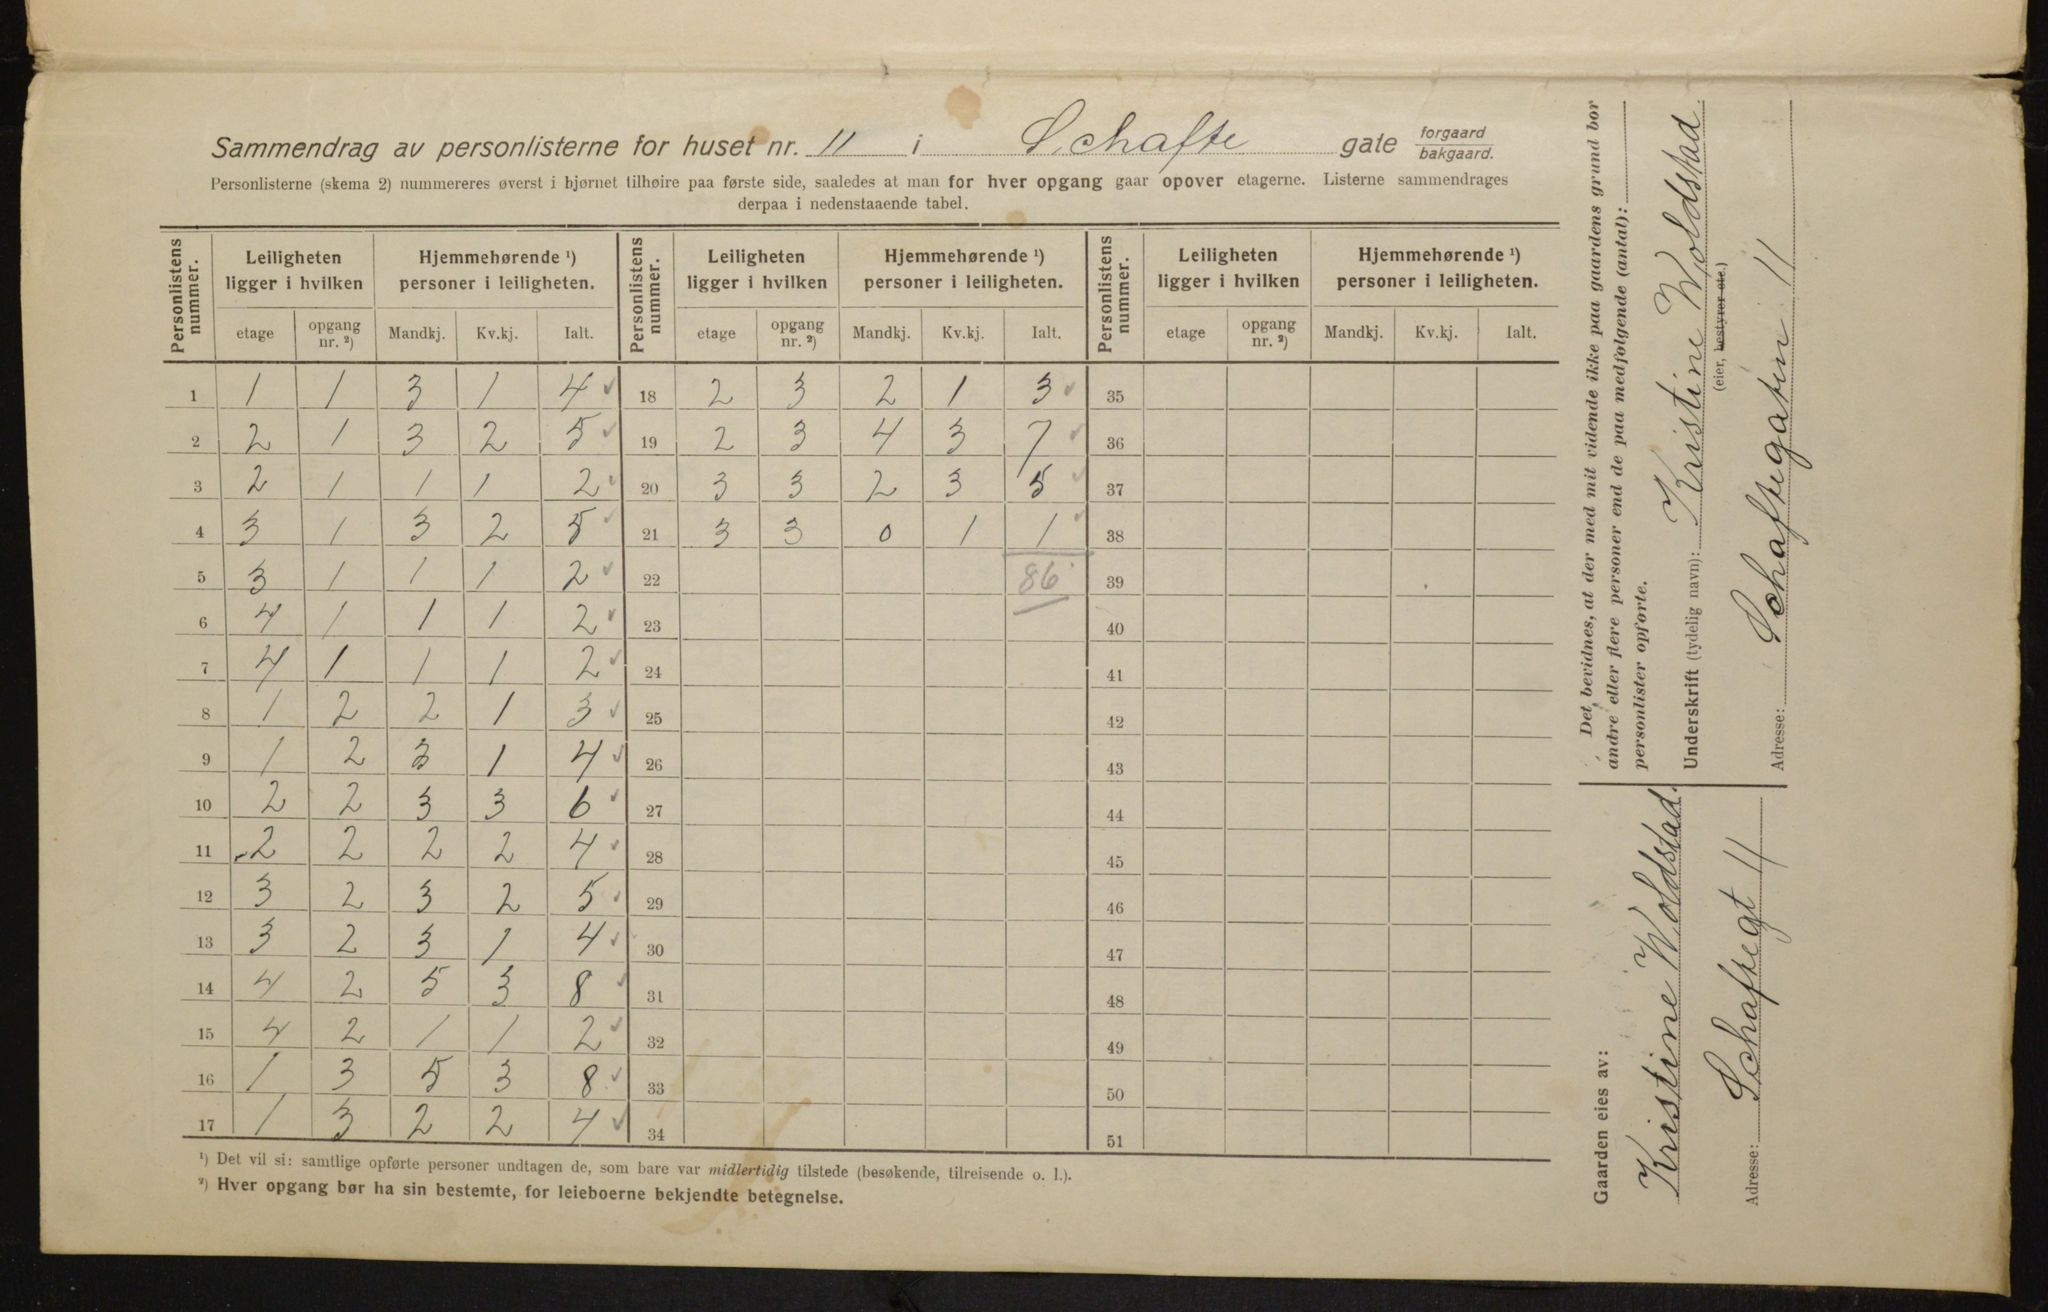 Sammendrag av personlisterne for huset nr. 11 i Schafte gate forgaard bakgaard.
Personlisterne (skema 2) nummereres øverst i hjørnet tilhøire paa første side, saaledes at man for hver opgang gaar opover etagerne. Listerne sammendrages
derpaa i nedenstaaende tabel.
Personlistens nummer. Leiligheten ligger i hvilken Hjemmehørende ¹) personer i leiligheten. Personlistens nummer. Leiligheten ligger i hvilken Hjemmehørende ¹) personer i leiligheten. Personlistens nummer. Leiligheten ligger i hvilken Hjemmehørende ¹) personer i leiligheten.
etage opgang nr. ²) Mandkj. Kv.kj. Ialt. etage opgang nr. ²) Mandkj. Kv.kj. Ialt. etage opgang nr. ²) Mandkj. Kv.kj. Ialt.
1 1 1 3 1 4 18 2 3 2 1 3 35
2 2 1 3 2 5 19 2 3 4 3 7 36
3 2 1 1 1 2 20 3 3 2 3 5 37
4 3 1 3 2 5 21 3 3 0 1 1 38
5 3 1 1 1 2 22 86 39
6 4 1 1 1 2 23 40
7 4 1 1 1 2 24 41
8 1 2 2 1 3 25 42
9 1 2 3 1 4 26 43
10 2 2 3 3 6 27 44
11 2 2 2 2 4 28 45
12 3 2 3 2 5 29 46
13 3 2 3 1 4 30 47
14 4 2 5 3 8 31 48
15 4 2 1 1 2 32 49
16 1 3 5 3 8 33 50
17 1 3 2 2 4 34 51
¹) Det vil si: samtlige opførte personer undtagen de, som bare var midlertidig tilstede (besøkende, tilreisende o. l.).
²) Hver opgang bør ha sin bestemte, for leieboerne bekjendte betegnelse.
Det bevidnes, at der med mit vidende ikke paa gaardens grund bor
andre eller flere personer end de paa medfølgende (antal):
personlister opførte.
Underskrift (tydelig navn): Kristine Woldstad.
(eier, bestyrer etc.)
Adresse: Schaftegaten 11
Gaarden eies av:
Kristine Woldstad.
Adresse: Schaftegt 11